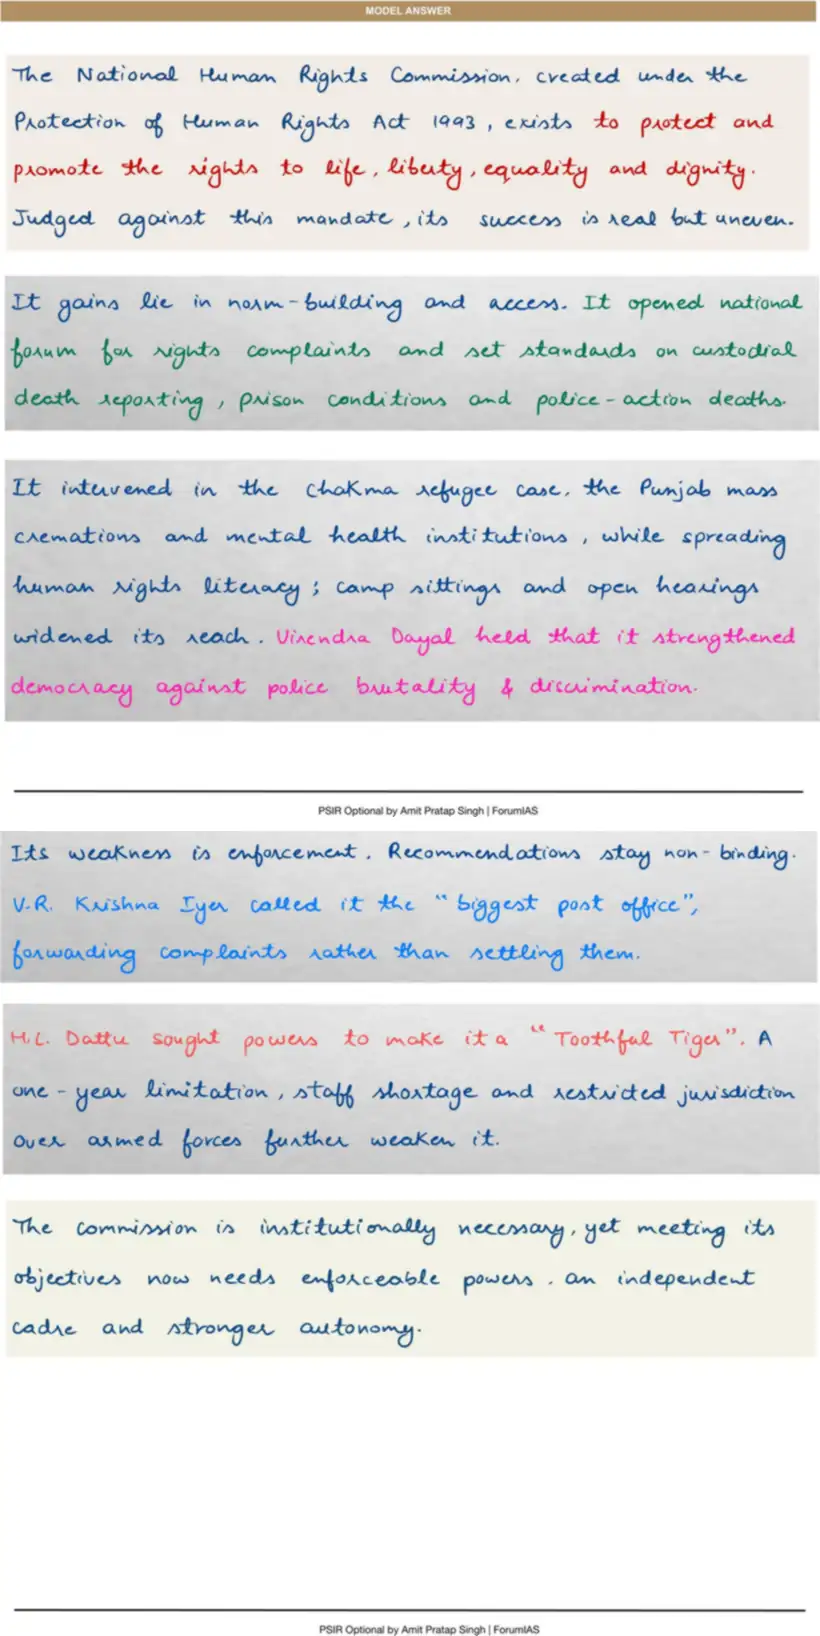 MODEL ANSWER
The National Human Rights Commission, created under the
Protection of Human Rights Act 1993, exists to protect and
promote the rights to life, liberty, equality and dignity.
Judged against this mandate, its success is real but uneven.
It gains lie in norm-building and access. It opened national
forum for rights complaints and set standards on custodial
death reporting, prison conditions and police-action deaths.
It intervened in the Chakma refugee case, the Punjab mass
cremations and mental health institutions, while spreading
human rights literacy; camp sittings and open hearings
widened its reach. Virendra Dayal held that it strengthened
democracy against police brutality & discrimination.
PSIR Optional by Amit Pratap Singh | ForumIAS
Its weakness is enforcement. Recommendations stay non-binding.
V.R. Krishna Iyer called it the "biggest post office",
forwarding complaints rather than settling them.
H.L. Dattu sought powers to make it a "Toothful Tiger". A
one-year limitation, staff shortage and restricted jurisdiction
over armed forces further weaken it.
The commission is institutionally necessary, yet meeting its
objectives now needs enforceable powers, an independent
cadre and stronger autonomy.
PSIR Optional by Amit Pratap Singh | ForumIAS